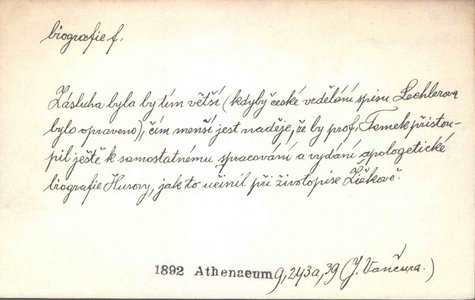 biografie f.
Zásluha byla by tím větší (kdyby české vzdělání spisu Lechlerova
bylo opraveno), čím menší jest naděje, že by prof. Tomek přistou-
pil ještě k samostatnému spracování a vydání apologetické
biografie Husovy, jak to učinil při životopise Žižkově.
1892 Athenaeum 9, 243a, 39 (J. Vančura.)